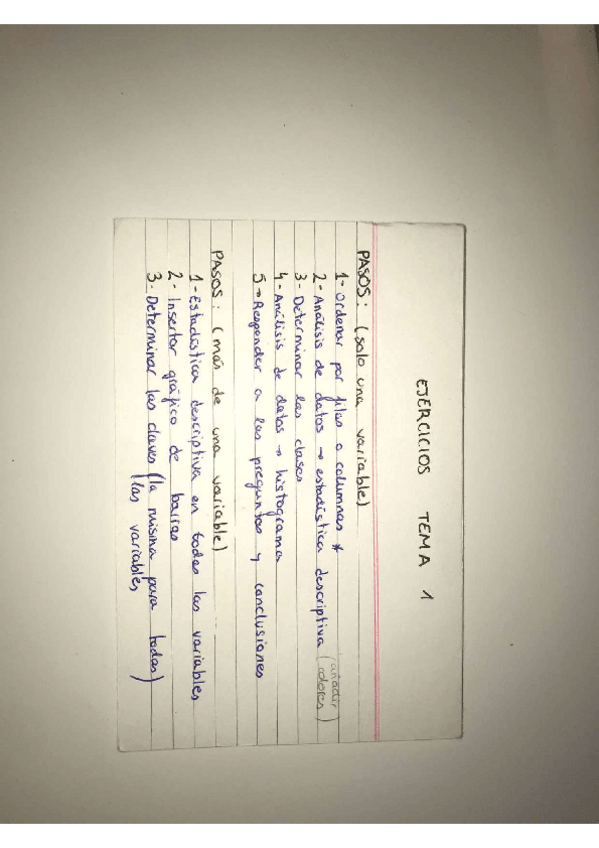 EJERCICIOS TEMA 1
PASOS: (solo una variable)
1- Ordenar por filas o columnas *
2- Análisis de datos → estadística descriptiva (añadir colores)
3- Determinar las clases
4- Análisis de datos → histograma
5 → Responder a las preguntas y conclusiones
PASOS: (más de una variable)
1- Estadística descriptiva en todas las variables
2- Insertar gráfico de barras
3- Determinar las claves (la misma para todas)
(las variables